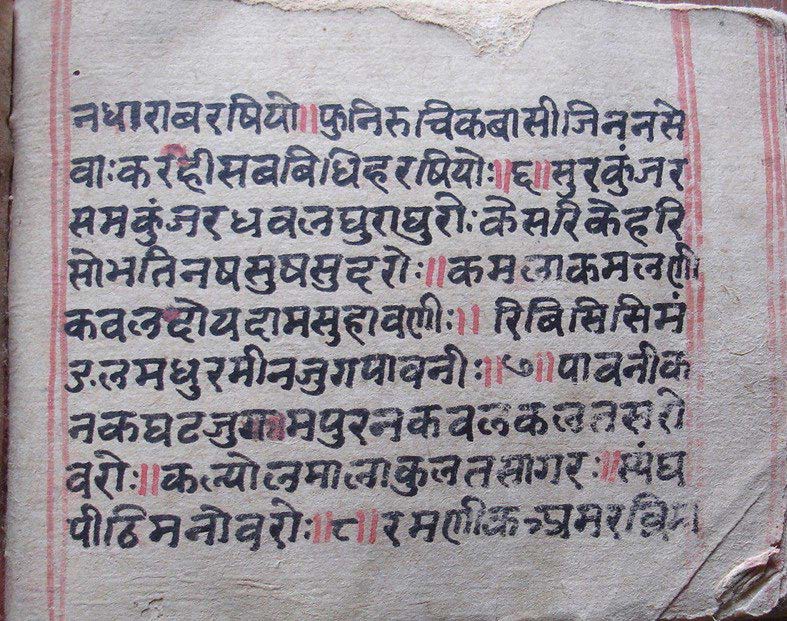 नधाराबरषियो॥फुनिरुचिकबासीजिननसे
वाःकरहीसबबिधिहरषियोः॥६॥सुरकुंजर
समकुंजरधवलघुराघुरोःकेसरिकेहरि
सोभतिनषसुषसुदरोः॥कमलाकमलणी
कवलदोयदामसुहावणीः॥रिबिसिसिमं
डलमधुरमीनजुगपावनीः॥७॥पावनीक
नकघटजुगमपुरनकवलकलतसरो
वरोः॥कल्योलमालाकुलतसागरः॥स्यंघ
पीठिमनोवरोः॥८॥रमणीक